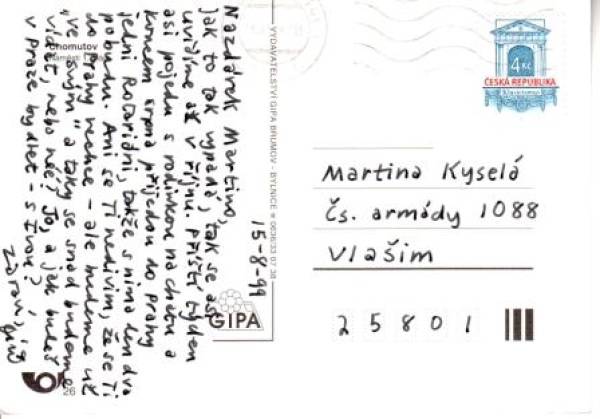 Nazdárek Martino,
jak to tak vypadá, tak se asi
uvidíme až v říjnu. Příští týden
asi pojedu s rodinkou na chatu a
koncem srpna přijedou do Prahy
jedni Rotariáni, takže s nima len dva
pobudu. Ani se Ti nedivím, že se Ti
do Prahy nechce - ale budeme už
"ve svým" a taky se snad budeme
vídat, nebo né? Jo, a jak budeš
v Praze bydlet - s Evou?
Zdraví,
15-8-99
Chomutov
Náměstí
VYDAVATELSTVÍ GIPA BRUMOV - BYLNICE ☎ 0636/33 07 38
GIPA
26
4 Kč
ČESKÁ REPUBLIKA
Martina Kyselá
Čs. armády 1088
Vlašim
25801